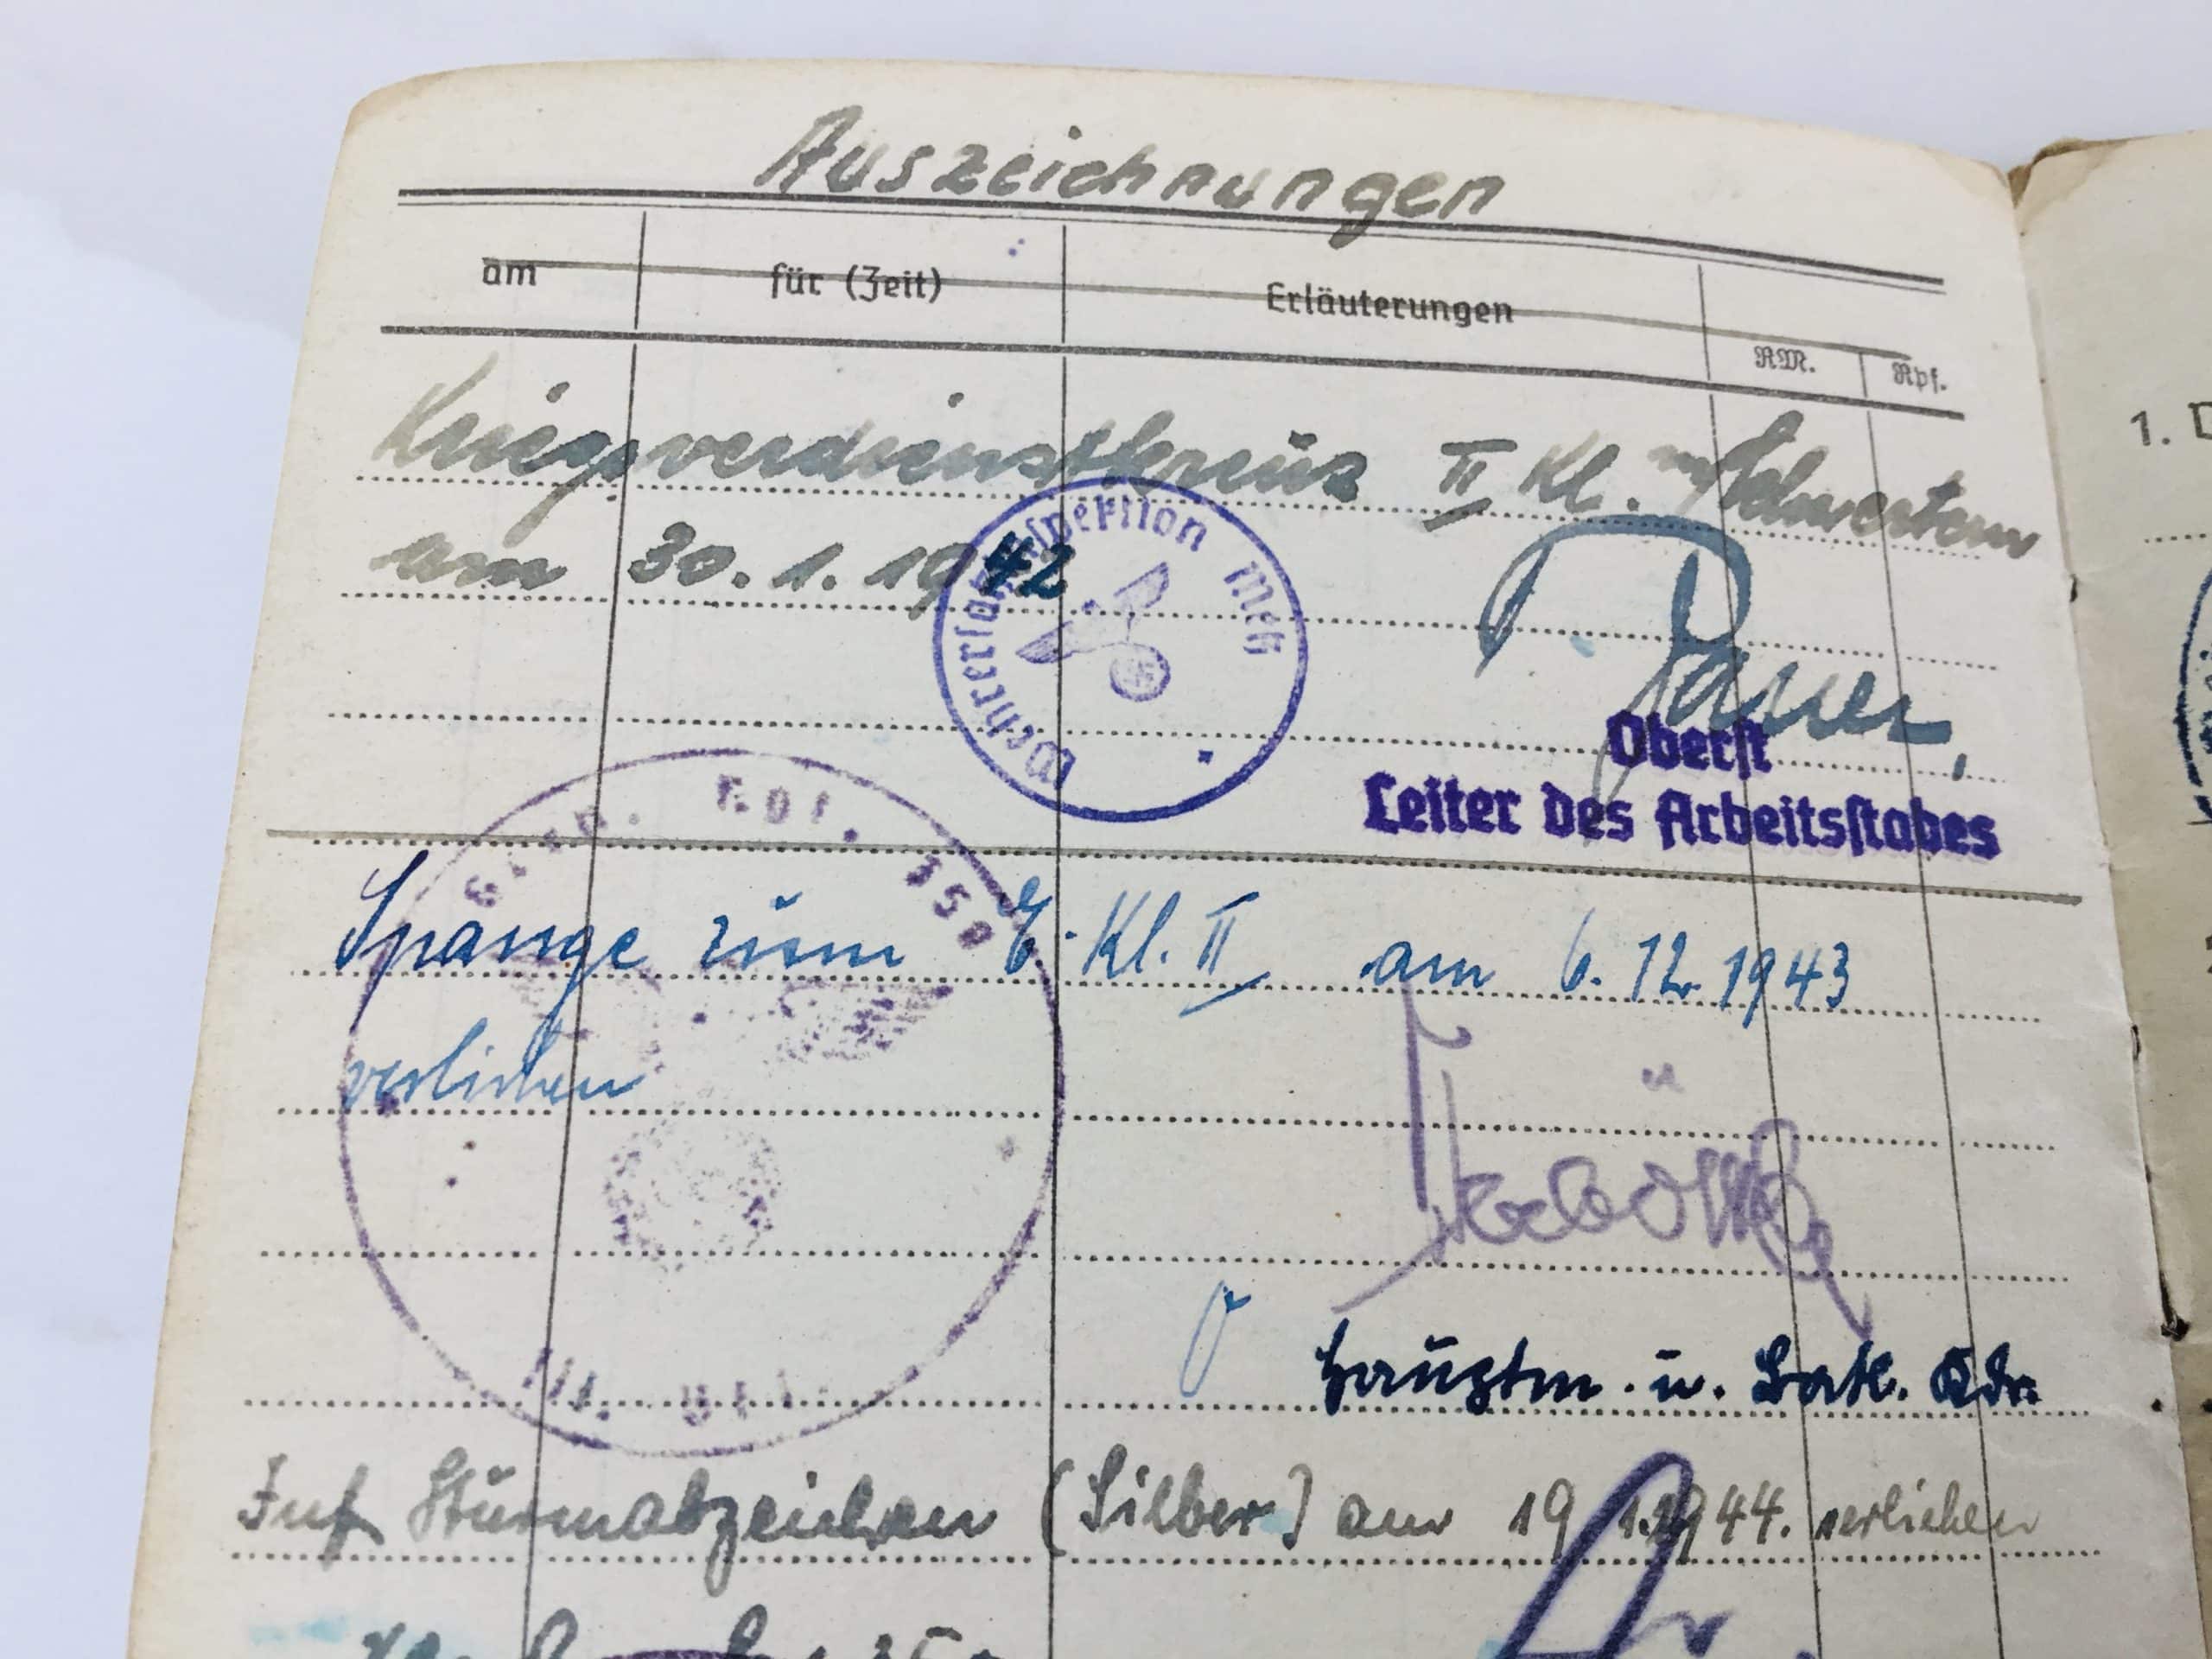 Auszeichnungen
am für (Zeit) Erläuterungen
RM. Rpf.
Kriegsverdienstkreuz II Kl. m/Schwertern
am 30.1.1942
Wehrersatzinspektion Metz
Oberst
Leiter des Arbeitsstabes
Gren. Rgt.
Spange zum E. Kl. II am 6.12.1943
verliehen
III.
Hauptm. u. Batl. Kdr.
Inf Sturmabzeichen (Silber) am 19 1.1944. verliehen
1.